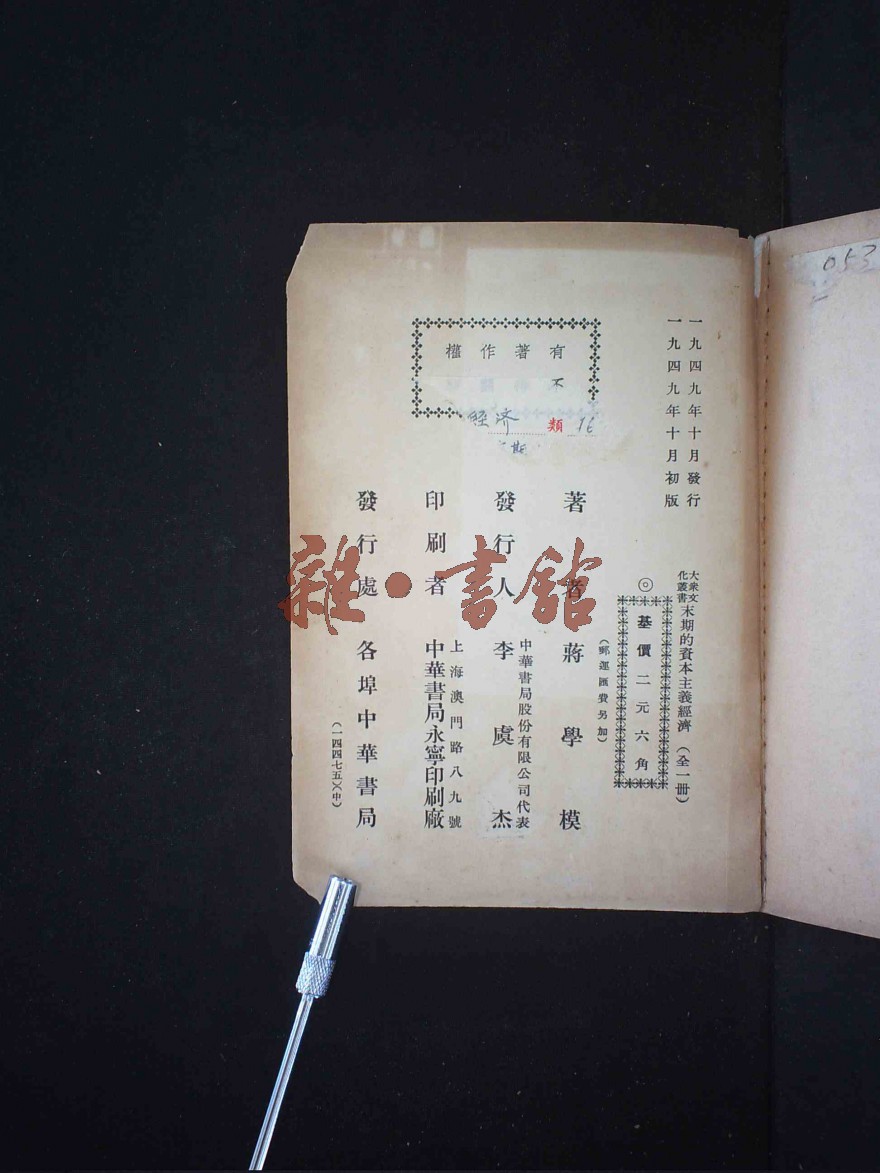 一九四九年十月發行
一九四九年十月初版
大衆文化叢書
末期的資本主義經濟（全一冊）
◎基價二元六角
（郵運匯費另加）
有著作權
不
經济 類 16
期
著者 蔣學模
發行人 中華書局股份有限公司代表
李虞杰
印刷者 上海澳門路八九號
中華書局永寧印刷廠
發行處 各埠中華書局
（一四四七五）（中）
053
雜·書館